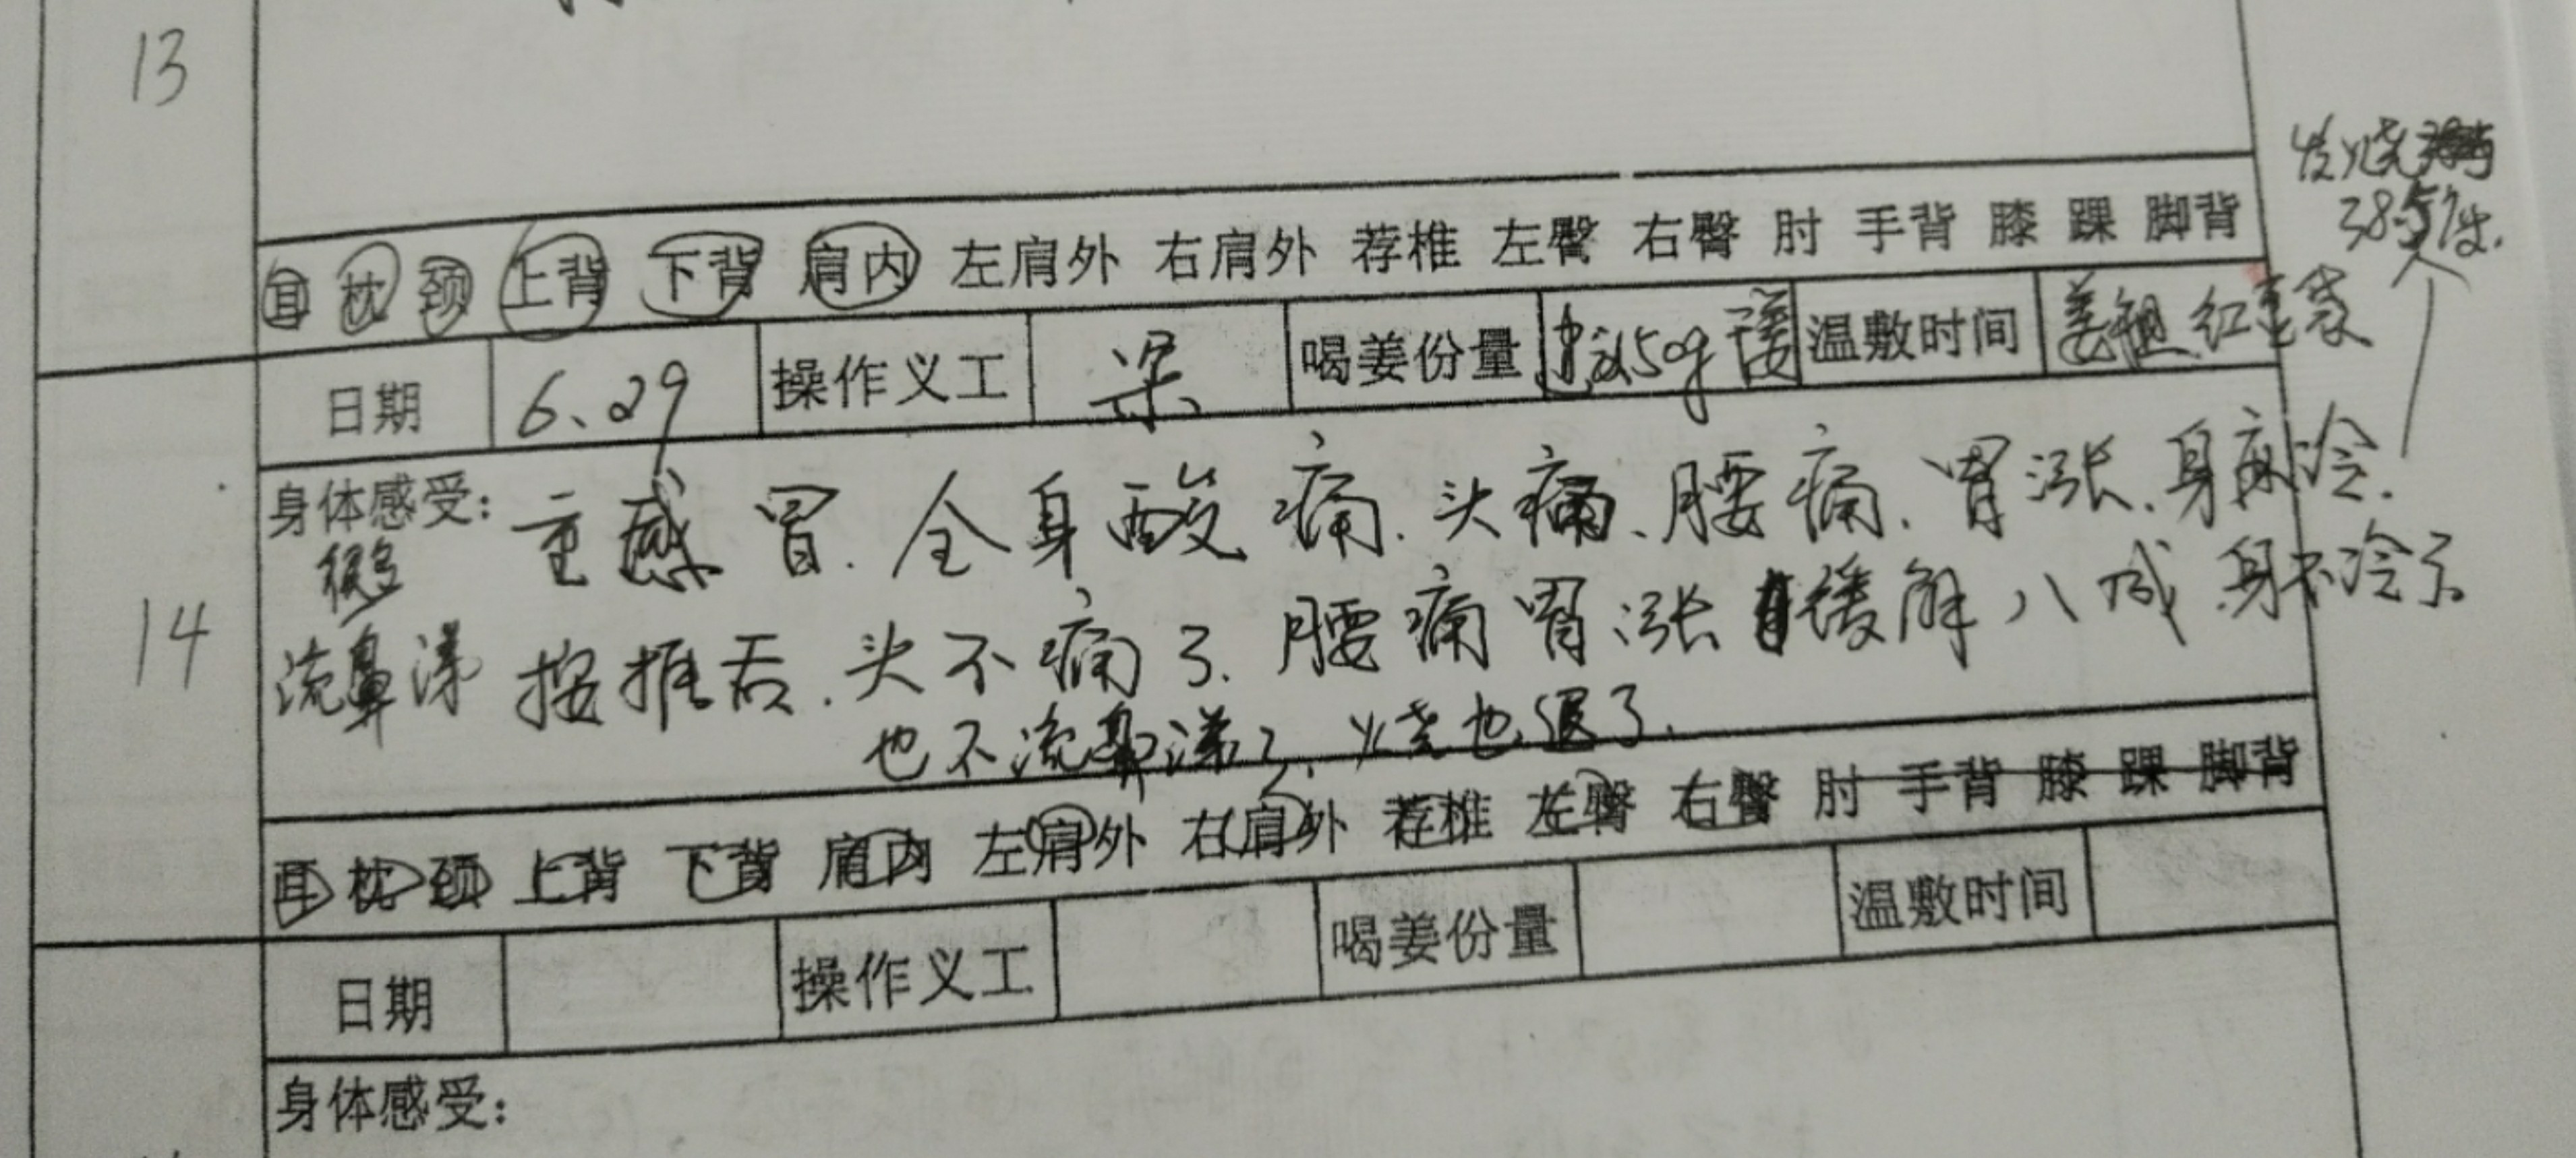 13
耳 枕 颈 上背 下背 肩内 左肩外 右肩外 荐椎 左臀 右臀 肘 手背 膝 踝 脚背
发烧
38.5度
日期 6.29 操作义工 梁 喝姜份量 50g 温敷时间 红豆袋
14
身体感受: 重感冒.全身酸痛.头痛、腰痛、胃涨、身 冷.
很多
流鼻涕 按推后.头不痛了.腰痛胃涨 缓解八成.身不冷了
也不流鼻涕了.烧也退了.
耳 枕 颈 上背 下背 肩内 左肩外 右肩外 荐椎 左臀 右臀 肘 手背 膝 踝 脚背
日期 操作义工 喝姜份量 温敷时间
身体感受: